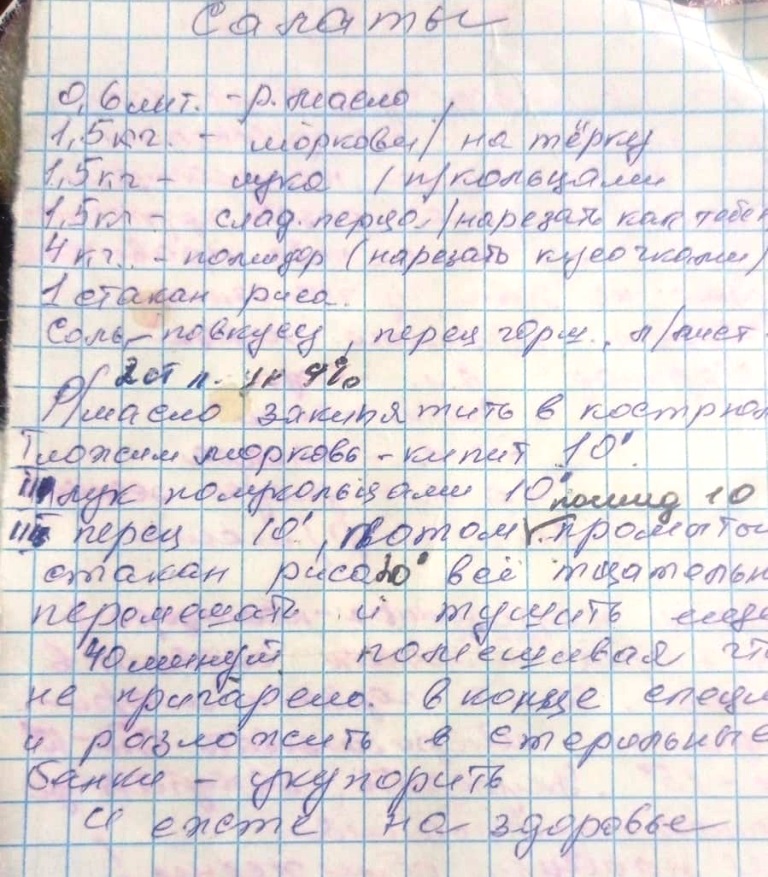 Салаты
0,6 лит. - р. масло
1,5 кг. - моркови / на тёрку
1,5 кг - лука / п/кольцами
1,5 кг - слад. перца. / нарезать как тебе н
4 кг. - помидор (нарезать кусочками)
1 стакан риса.
Соль - по вкусу, перец горш., л/лист.
2 ст л. ук 9%
Р/масло закипятить в кострюл
I ложим морковь - кипит 10'
II лук полукольцами 10' помид 10
III перец 10', потом промыты
стакан риса 10' всё тщательн
перемешать и тушить еще
40 минут помешивая чт
не пригарело. в конце специ
и разложить в стерильные
банки - укупорить
И ежте на здоровье